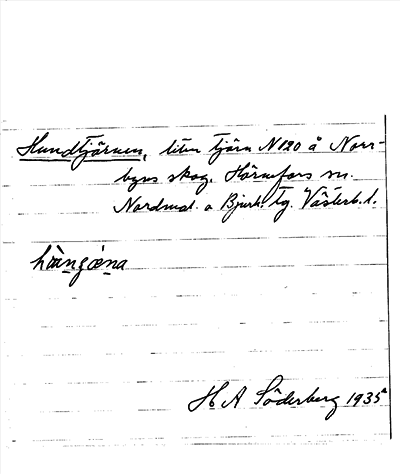 Hundtjärnen, liten tjärn N120 å Norr-
byns skog. Hörnefors sn.
Nordmal. o Bjurh. tg. Västerb. l.
H A Söderberg 1935